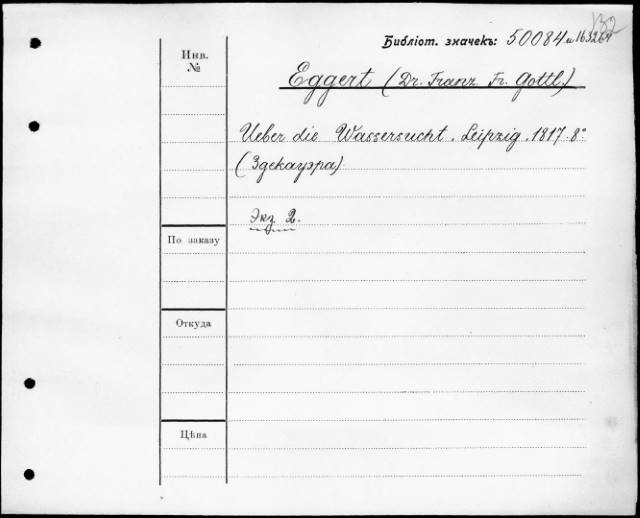 132
Библіот. значекъ: 50084 и 163264
Инв. №
Eggert (Dr. Franz Fr. Gottl.)
Ueber die Wassersucht. Leipzig. 1817. 8°
(Здекауэра)
Экз 2.
По заказу
Откуда
Цѣна